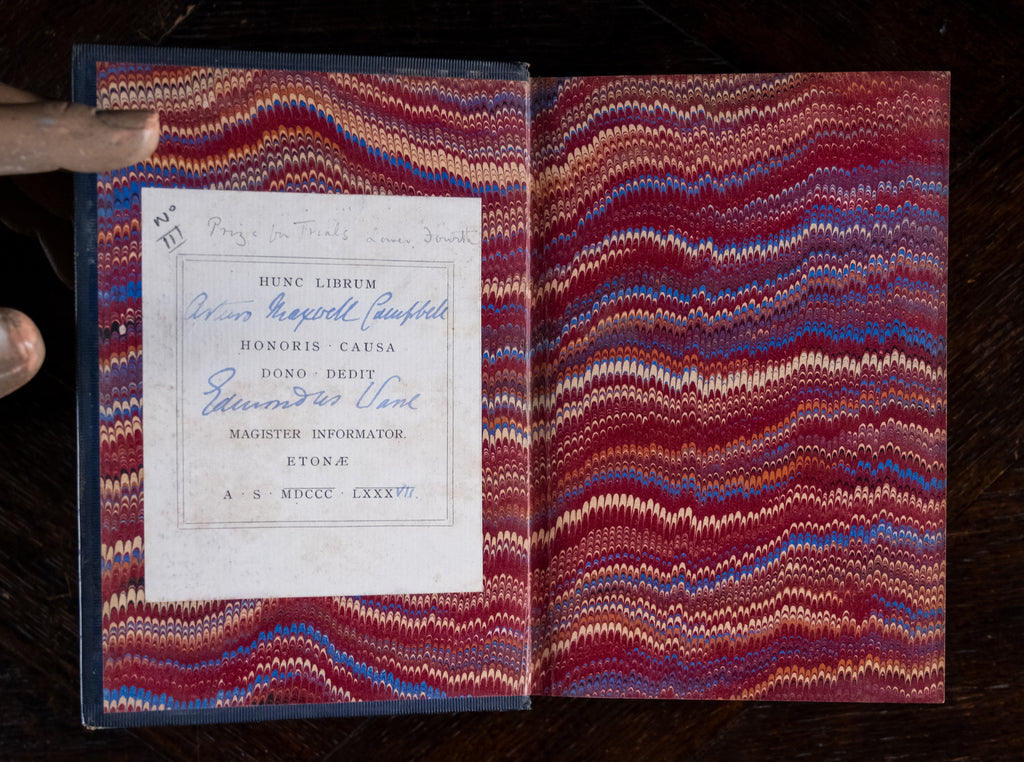 Nº
III
Prize for Trials Lower Fourth
HUNC LIBRUM
Arturo Maxwell Campbell
HONORIS · CAUSA
DONO · DEDIT
Edmondus Warre
MAGISTER INFORMATOR.
ETONÆ
A · S · MDCCC · LXXXVII.